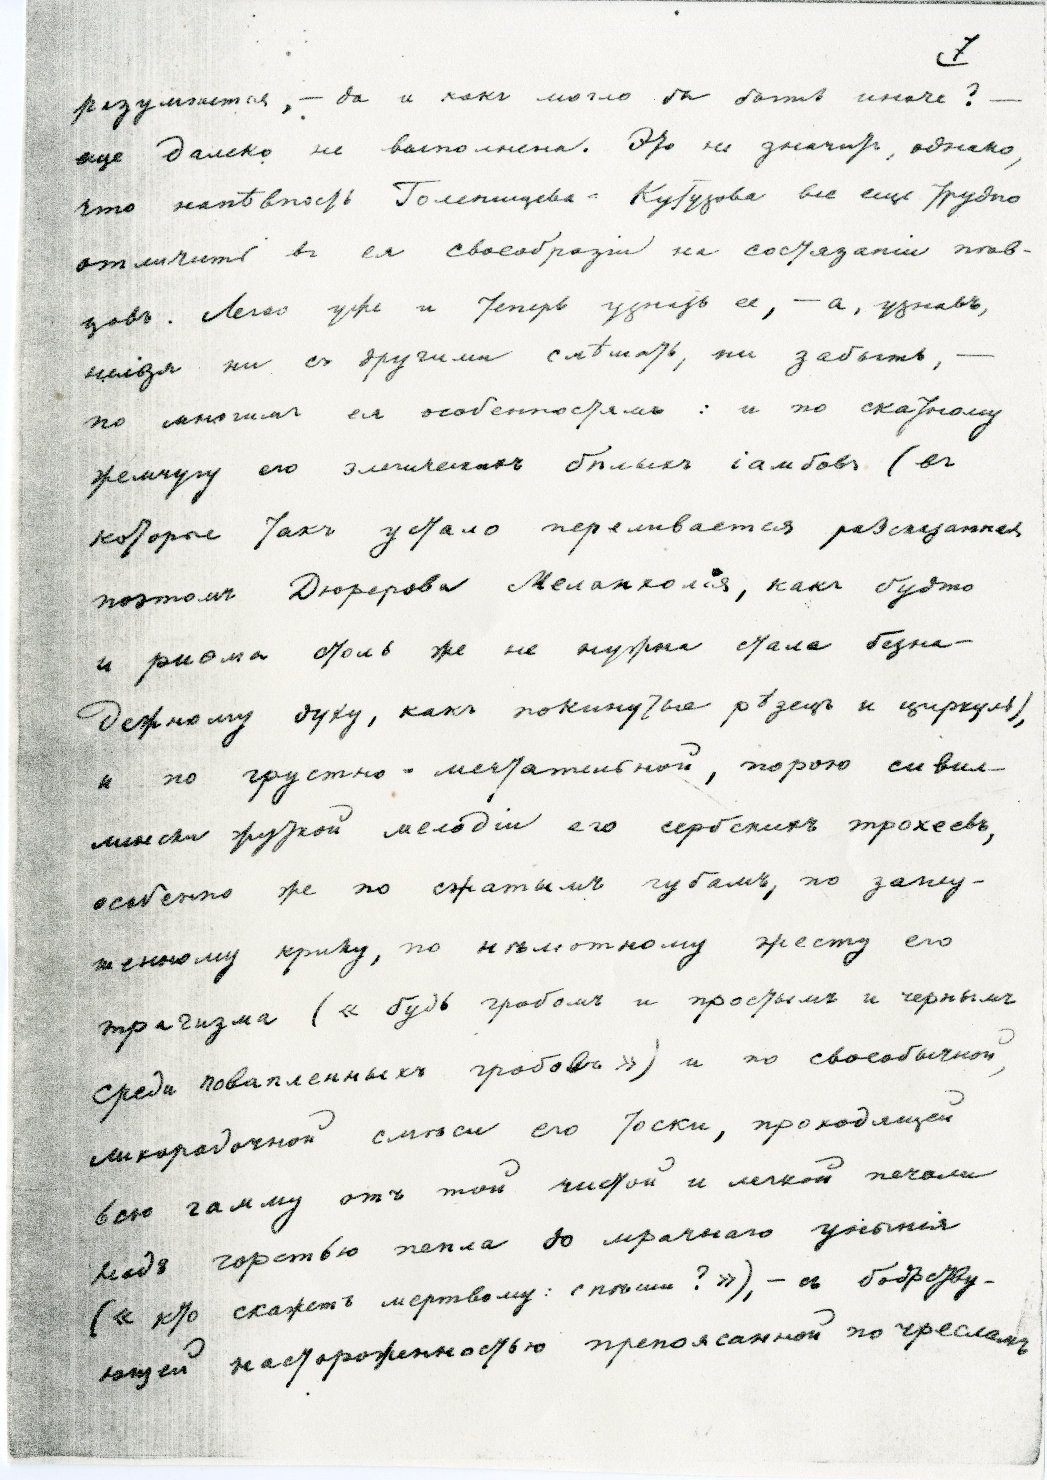 7
разумѣется, — да и какъ могло бы быть иначе? —
еще далеко не выполнена. Это не значитъ, однако,
что напѣвность Голенищева-Кутузова все еще трудно
отличить въ ея своеобразіи на состязаніи пѣв-
цовъ. Легко уже и теперь узнать ее, — а, узнавъ,
нельзя ни съ другими смѣшать, ни забыть, —
по многимъ ея особенностямъ: и по скатному
жемчугу его элегическихъ бѣлыхъ іамбовъ (въ
которые такъ устало переливается разсказанная
поэтомъ Дюрерова Меланхолія, какъ будто
и риѳма столь же не нужна стала безна-
дежному духу, какъ покинутые рѣзецъ и циркуль),
и по грустно-мечтательной, порою сивил-
лински жуткой мелодіи его сербскихъ трохеевъ,
особенно же по сжатымъ губамъ, по заглу-
шенному крику, по нѣмотному жесту его
трагизма (« будь гробомъ и простымъ и чернымъ
среди повапленныхъ гробовъ ») и по своеобычной,
лихорадочной смѣси его тоски, проходящей
всю гамму отъ той чистой и легкой печали
надъ горстью пепла до мрачнаго унынія
(« кто скажетъ мертвому: спѣши? »), — съ бодрству-
ющей настороженностью препоясанной по чресламъ